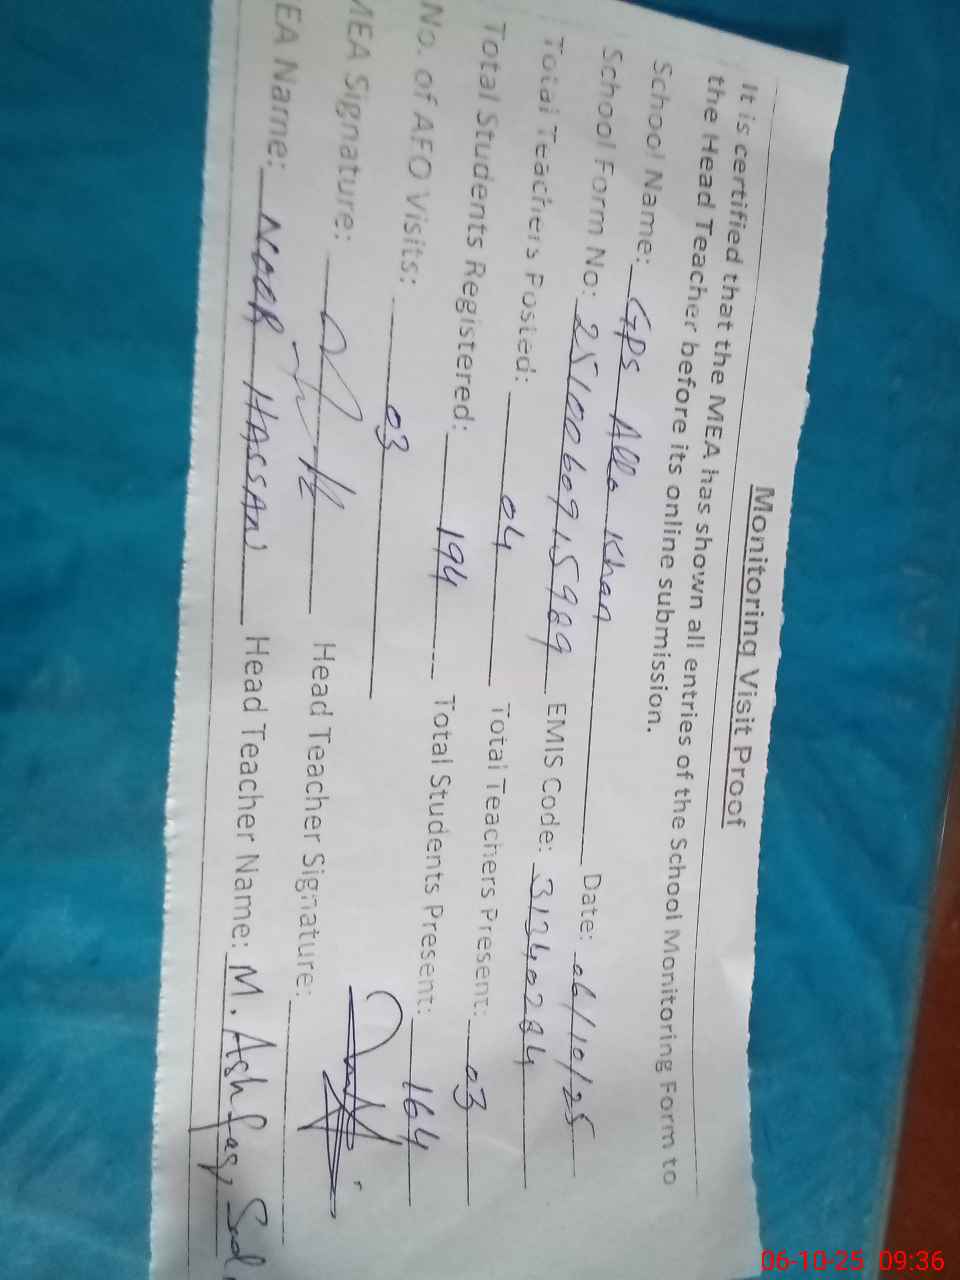 Monitoring Visit Proof
It is certified that the MEA has shown all entries of the School Monitoring Form to
the Head Teacher before its online submission.
School Name: GPS Alla Khan Date: 06/10/25
School Form No: 2510060915989 EMIS Code: 31340284
Total Teachers Posted: 04 Total Teachers Present: 03
Total Students Registered: 194 Total Students Present: 164
No. of AEO Visits: 03
MEA Signature: Head Teacher Signature:
EA Name: NOOR HASSAN Head Teacher Name: M. Ashfaq
06-10-25 09:36